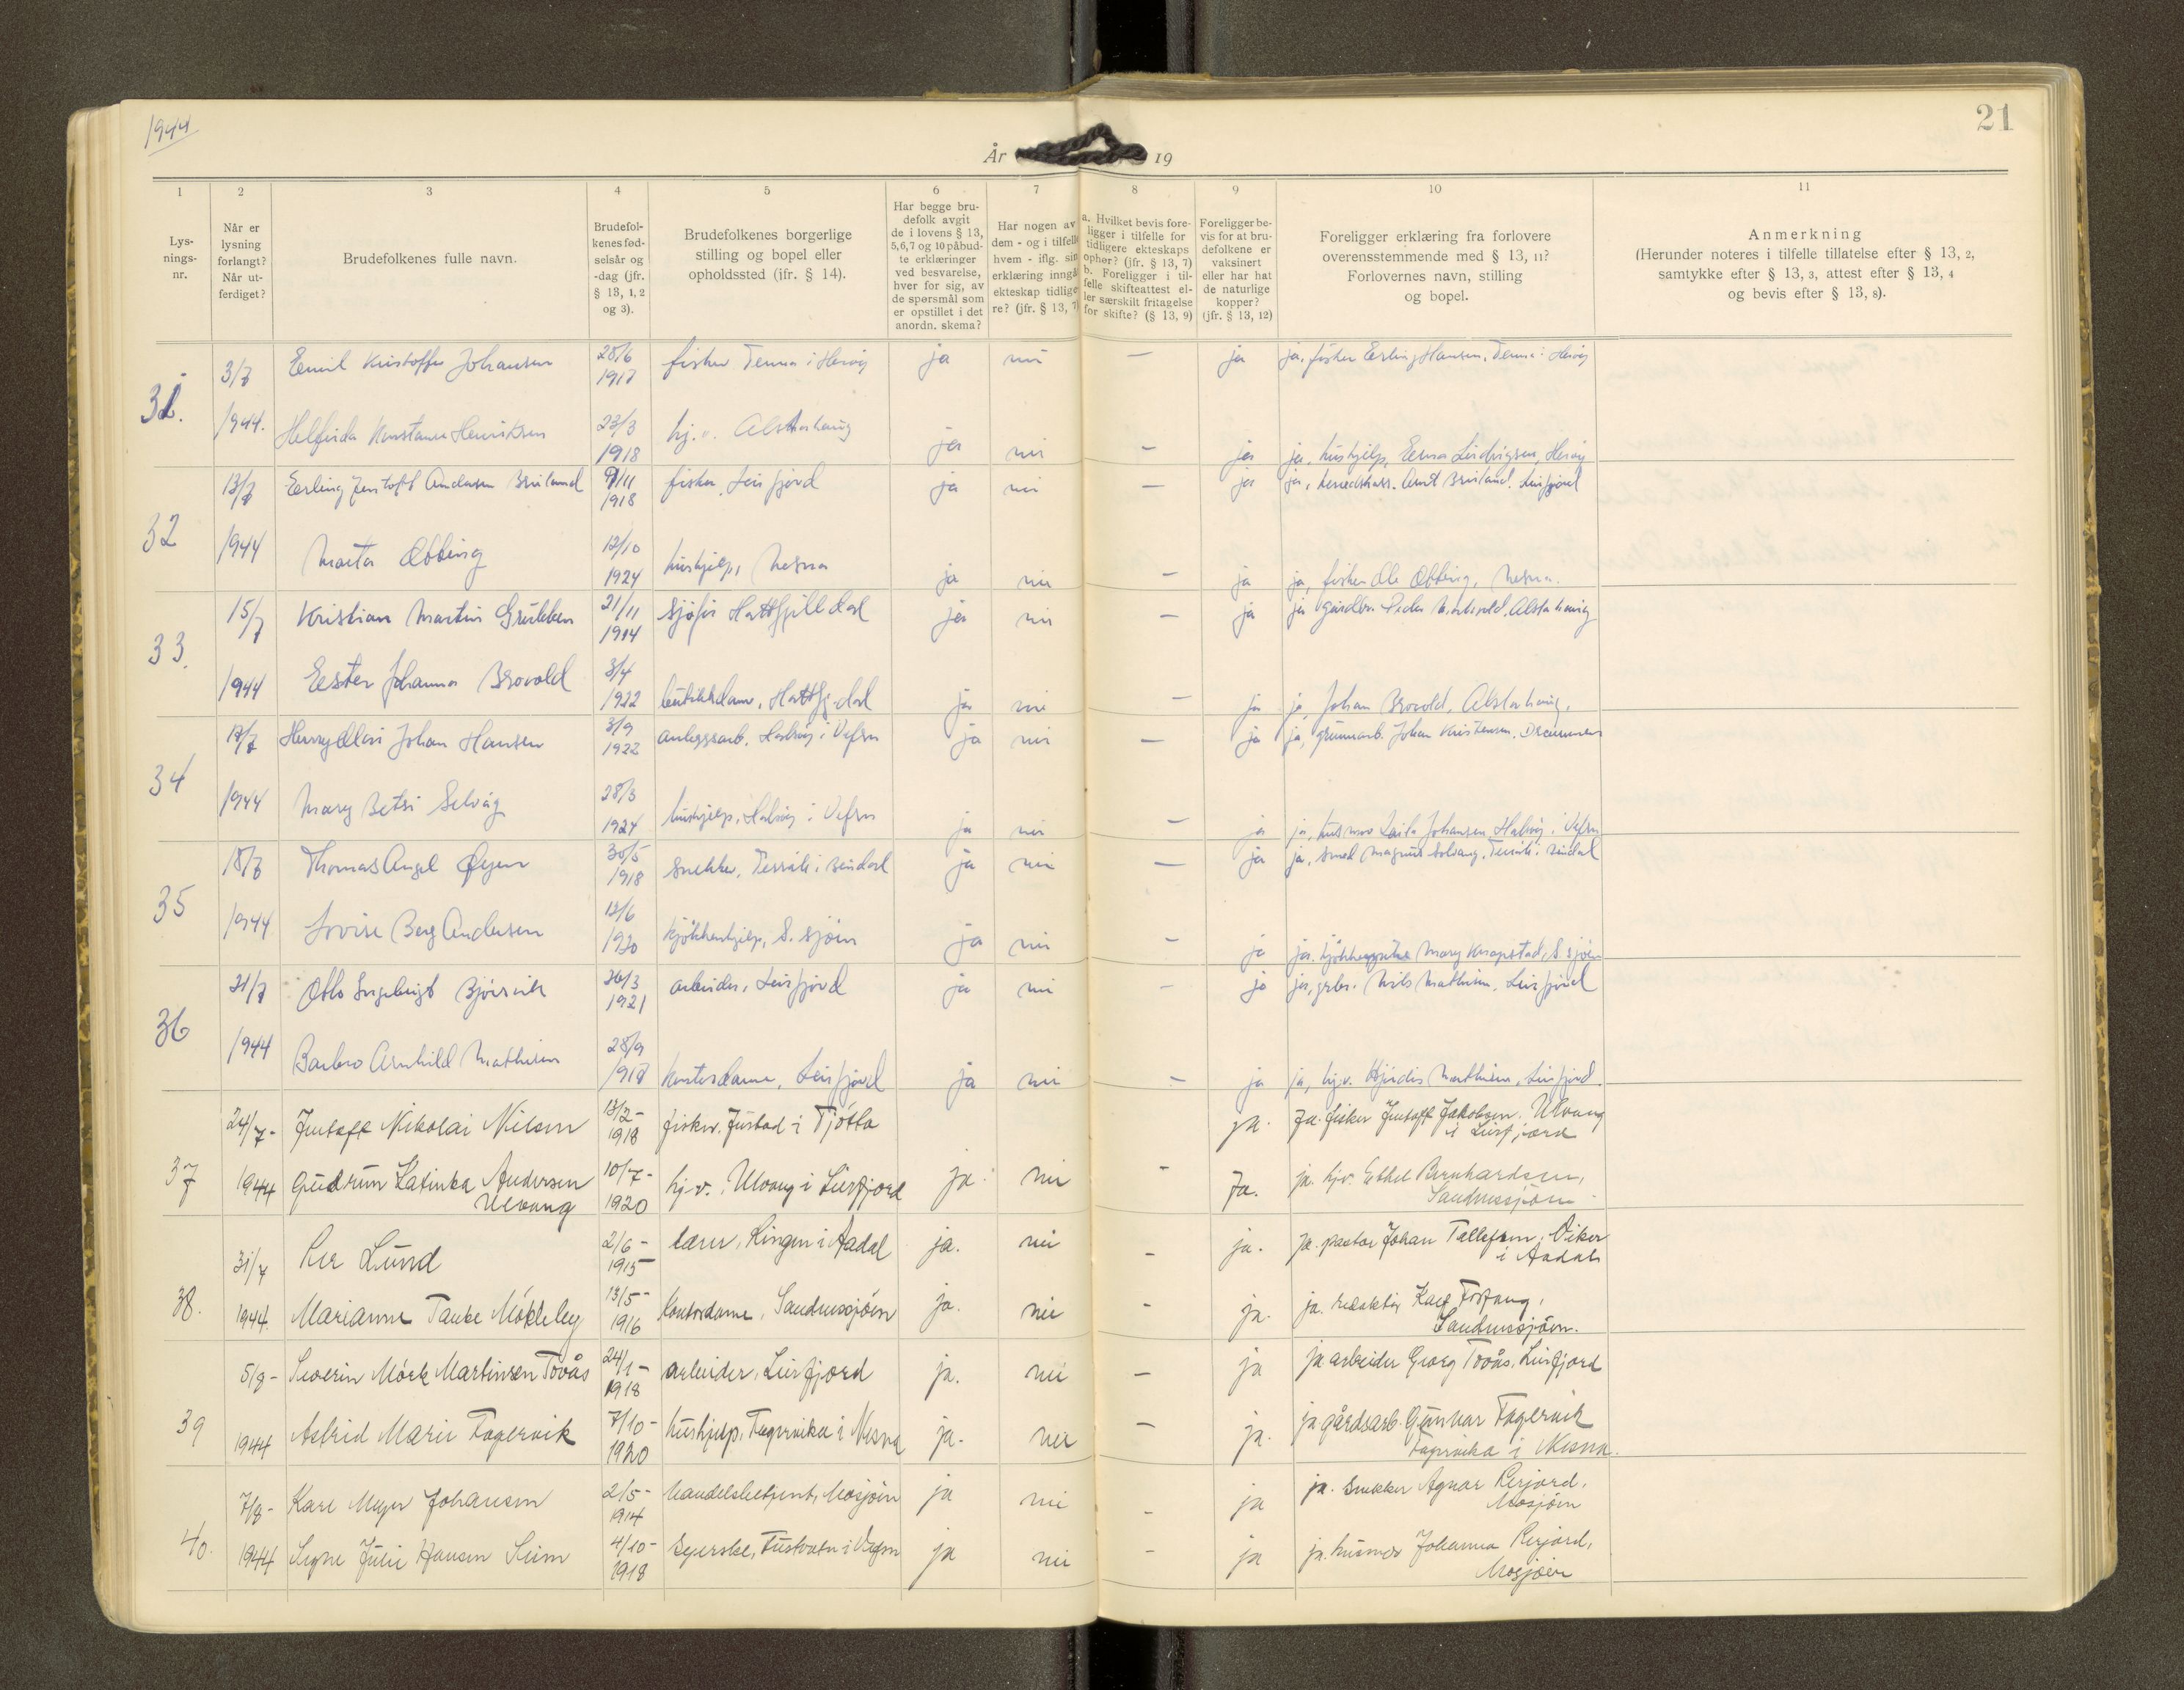 1944
21
År 19
1 2 3 4 5 6 7 8 9 10 11
Lys-
nings-
nr.
Når er
lysning
forlangt?
Når ut-
ferdiget?
Brudefolkenes fulle navn.
Brudefol-
kenes fød-
selsår og
-dag (jfr.
§ 13, 1, 2
og 3).
Brudefolkenes borgerlige
stilling og bopel eller
opholdssted (jfr. § 14).
Har begge bru-
defolk avgit
de i lovens § 13,
5,6,7 og 10 påbud-
te erklæringer
ved besvarelse,
hver for sig, av
de spørsmål som
er opstillet i det
anordn. skema?
Har nogen av
dem - og i tilfelle
hvem - iflg. sin
erklæring inngå
ekteskap tidlige
re? (jfr. § 13, 7)
a. Hvilket bevis fore-
ligger i tilfelle for
tidligere ekteskaps
ophør? (jfr. § 13, 7)
b. Foreligger i til-
felle skifteattest el-
ler særskilt fritagelse
for skifte? (§ 13, 9)
Foreligger be-
vis for at bru-
defolkene er
vaksinert
eller har hat
de naturlige
kopper?
(jfr. § 13, 12)
Foreligger erklæring fra forlovere
overensstemmende med § 13, 11?
Forlovernes navn, stilling
og bopel.
Anmerkning
(Herunder noteres i tilfelle tillatelse efter § 13, 2,
samtykke efter § 13, 3, attest efter § 13, 4
og bevis efter § 13, 8).
31. 3/7 Emil Kristoffer Johansen 28/6 1917 fisker Tenna i Herøy ja nei — ja ja, fisker Erling Hansen, Tenna i Herøy
1944. Helfrida Konstanse Henriksen 23/3 1918 hj.v. Alstahaug ja nei — ja ja, hushjelp, Erna Ludvigsen, Herøy
32 13/7 Erling Jentoft Andersen Breiland 9/11 1918 fisker, Leirfjord ja nei — ja ja, Arnt Breiland, Leirfjord
1944 Marta Ebbing 12/10 1924 hushjelp, Nesna ja nei — ja ja, fisker Ole Ebbing, Nesna.
33. 15/7 Kristian Martin Grubben 21/11 1914 sjøfør Hattfjelldal ja nei — ja ja gårdbr. Peder Alstahaug
1944 Ester Johanna Brovold 3/4 1922 butikkdame, Hattfj.dal ja nei — ja ja, Johan Brovold, Alstahaug,
34 17/7 Henry Johan Hansen 3/9 1922 anleggsarb. Halsøy i Vefsn ja nei — ja ja, Johan Kristensen, Drammen
1944 Mary Betsi Selvåg 28/3 1924 hushjelp, Halsøy i Vefsn ja nei — ja ja, husmor Laila Johansen, Halsøy i Vefsn
35 18/7 Thomas Angel Øyen 30/5 1918 snekker, Terråk i Bindal ja nei — ja ja, smed Magnus Solvang, Terråk i Bindal
1944 Lovise Berg Andersen 12/6 1920 kjøkkenhjelp, S.sjøen ja nei — ja ja, Mary Knapstad, S.sjøen
36 21/7 Otto Ingebrigt Bjørsvik 26/3 1921 arbeider, Leirfjord ja nei — ja ja, grbr. Nils Mathisen, Leirfjord
1944 Barbro Arnhild Mathisen 28/9 1918 kontordame, Leirfjord ja nei — ja ja, hj.v. Hjørdis Mathisen, Leirfjord.
37 24/7- Jentoft Nikolai Nilsen 13/2- 1918 fisker, Justad i Tjøtta ja. Ja. fisker Jentoft Jakobsen. Ulvang
i Leirfjord
1944 Gudrun Katinka Andersen 10/7- 1920 hj.v., Ulvang i Leirfjord ja. nei - Ja. ja. hjv. Ethel Bernhardsen,
Ulvang Sandnessjøen
38. 31/7 Per Lund 2/6- 1915 lærer, Ringen i Aadal ja. nei - ja. ja. pastor Johan Tallefsen, Viker
i Aadal
1944. Marianne Tanke Møkleby 13/5- 1916 Kontordame, Sandnessjøen ja. nei - ja. ja. redaktør Kaei Forfang,
Sandnessjøen.
39 5/8- Severin Mörk Martinsen Tovås 24/1- 1918 arbeider, Leirfjord ja. nei — ja ja arbeider Georg Tovås, Leirfjord
1944 Astrid Marie Fagervik 7/10- 1920 hushjelp, Fagervika i Nesna ja- nei — ja. ja gårdsarb. Gunnar Fagervik
Fagervika i Nesna.
40. 7/8- Kare Meyer Johansen 2/5- 1914 handelsbetjent, Mosjøen ja nei - ja ja. snekker Agnar Reyjord,
Mosjøen
1944 Signe Julie Hansen Seim 4/10- 1918 Syerske, Fustvatn i Vefsn ja nei - ja ja. husmor Johanna Reyjord,
Mosjøen